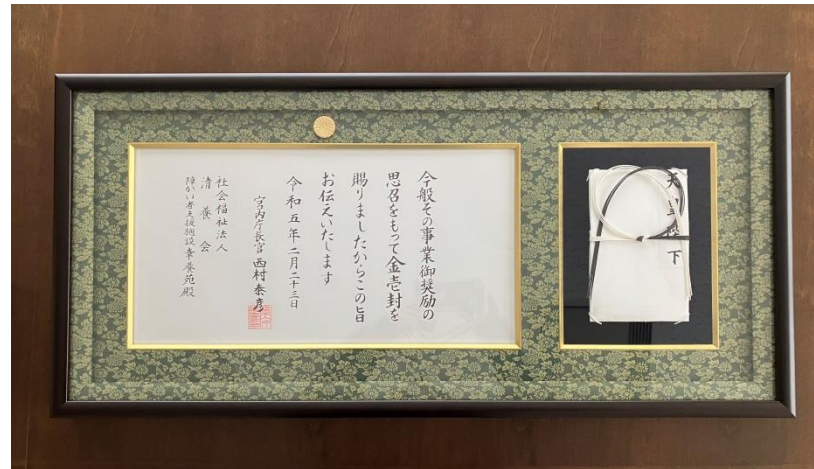 今般その事業御奨励の
思召をもって金壱封を
賜りましたからこの旨
お伝えいたします
令和五年二月二十三日
宮内庁長官 西村泰彦
社会福祉法人
清養会
障がい者支援施設幸養苑殿
下